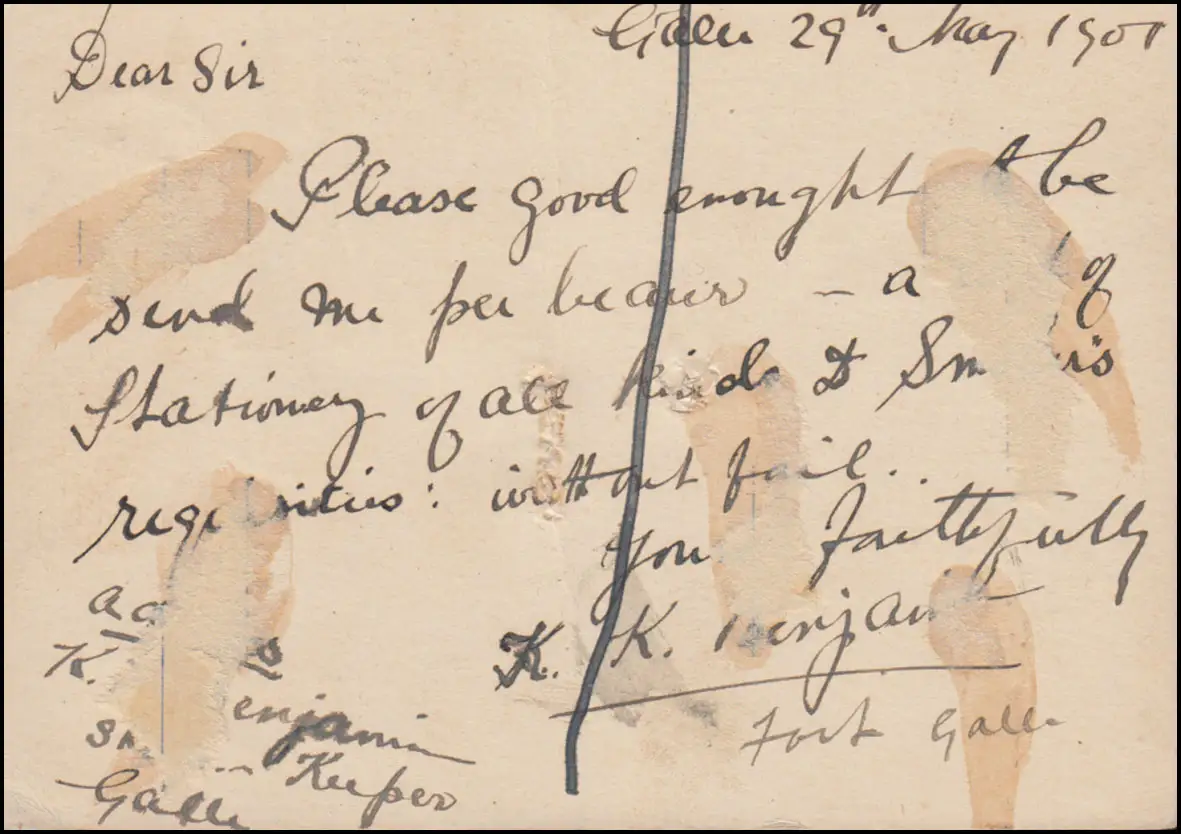 Galle 29th May 1901
Dear Sir
Please good enought be
send me per bearer - a of
Stationery of all kinds &
without fail.
faithfully
K. K. Benjamin
Fort Galle
K. Benjamin
Keeper
Galle